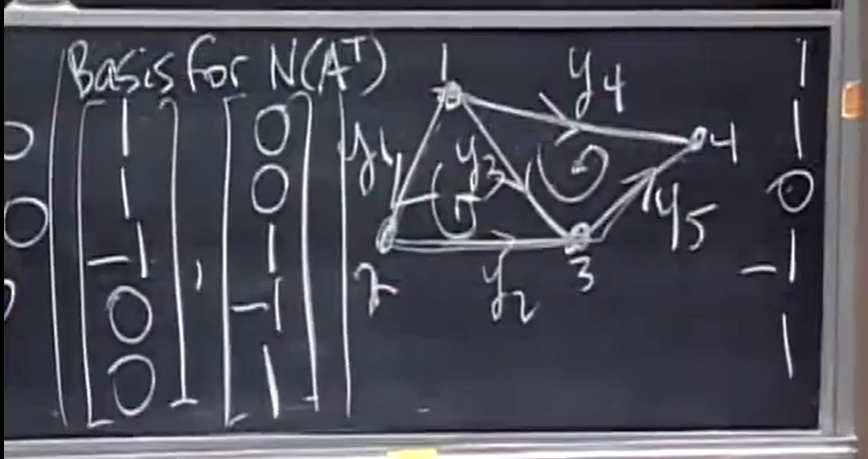 Basis for N(Aᵀ)
1 0
1 0
-1 , 1
0 -1
0 1
1
y4
y1
y3
4
y5
2
y2
3
1
1
0
-1
1
0
0